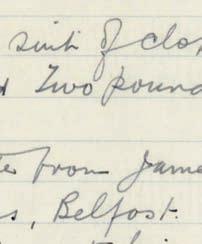 suit of clo
Two pound
from Jame
s, Belfast.